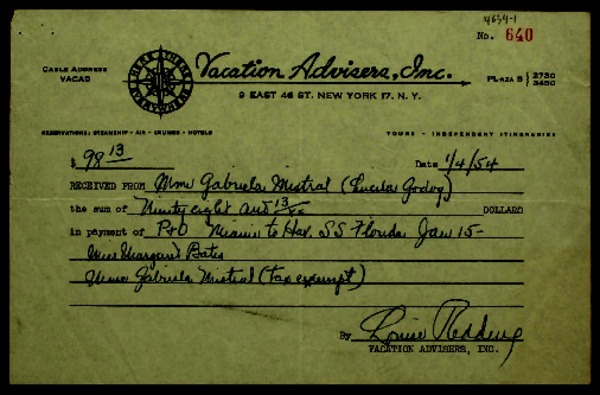 4634-1
No. 640
HERE THERE EVERYWHERE
Vacation Advisers, Inc.
CABLE ADDRESS
VACAD
PLAZA 5 { 2730
3450
9 EAST 46 ST. NEW YORK 17. N. Y.
RESERVATIONS: STEAMSHIP - AIR - CRUISES - HOTELS
TOURS - INDEPENDENT ITINERARIES
$ 98 13 Date 1/4/54
RECEIVED FROM Mme Gabriela Mistral (Lucila Godoy)
the sum of Ninety eight and 13/xx DOLLARS
in payment of P&O Miami to Hav. SS Florida Jan 15-
Miss Margaret Bates
Mme Gabriela Mistral (tax exempt)
By Louise
VACATION ADVISERS, INC.